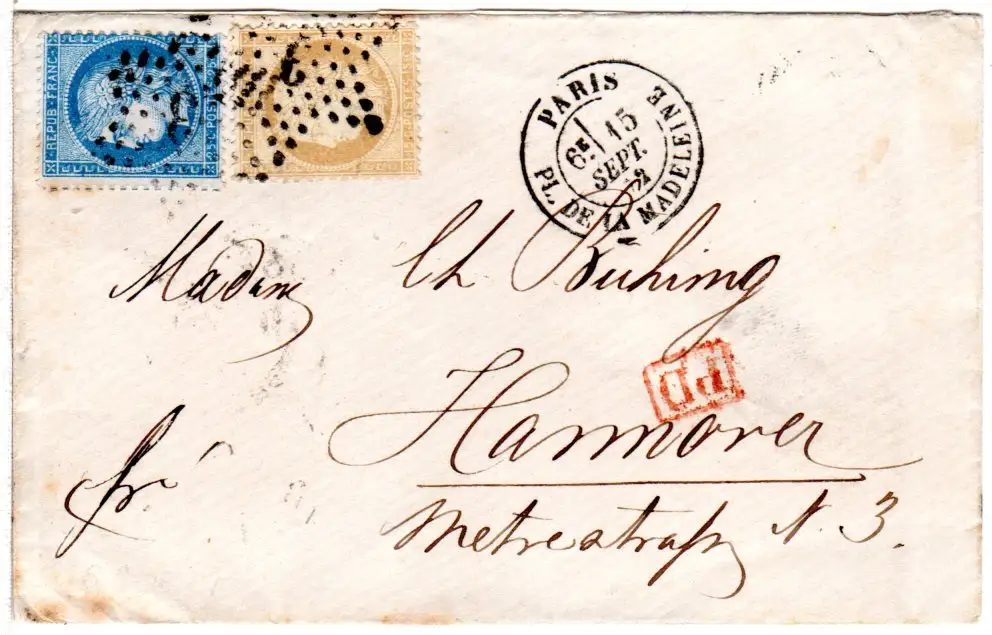 REPUB. FRANC.
25 C. POSTES 25 C.
PARIS
6E 15
SEPT.
72
PL. DE LA MADELEINE
Madame Ch Buhring
PD
Hannover
fr
N. 3.